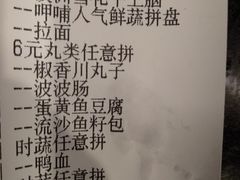 --呷哺人气鲜蔬拼盘
--拉面
6元丸类任意拼
--椒香川丸子
--波波肠
--蛋黄鱼豆腐
--流沙鱼籽包
时蔬任意拼
--鸭血
时蔬任意拼